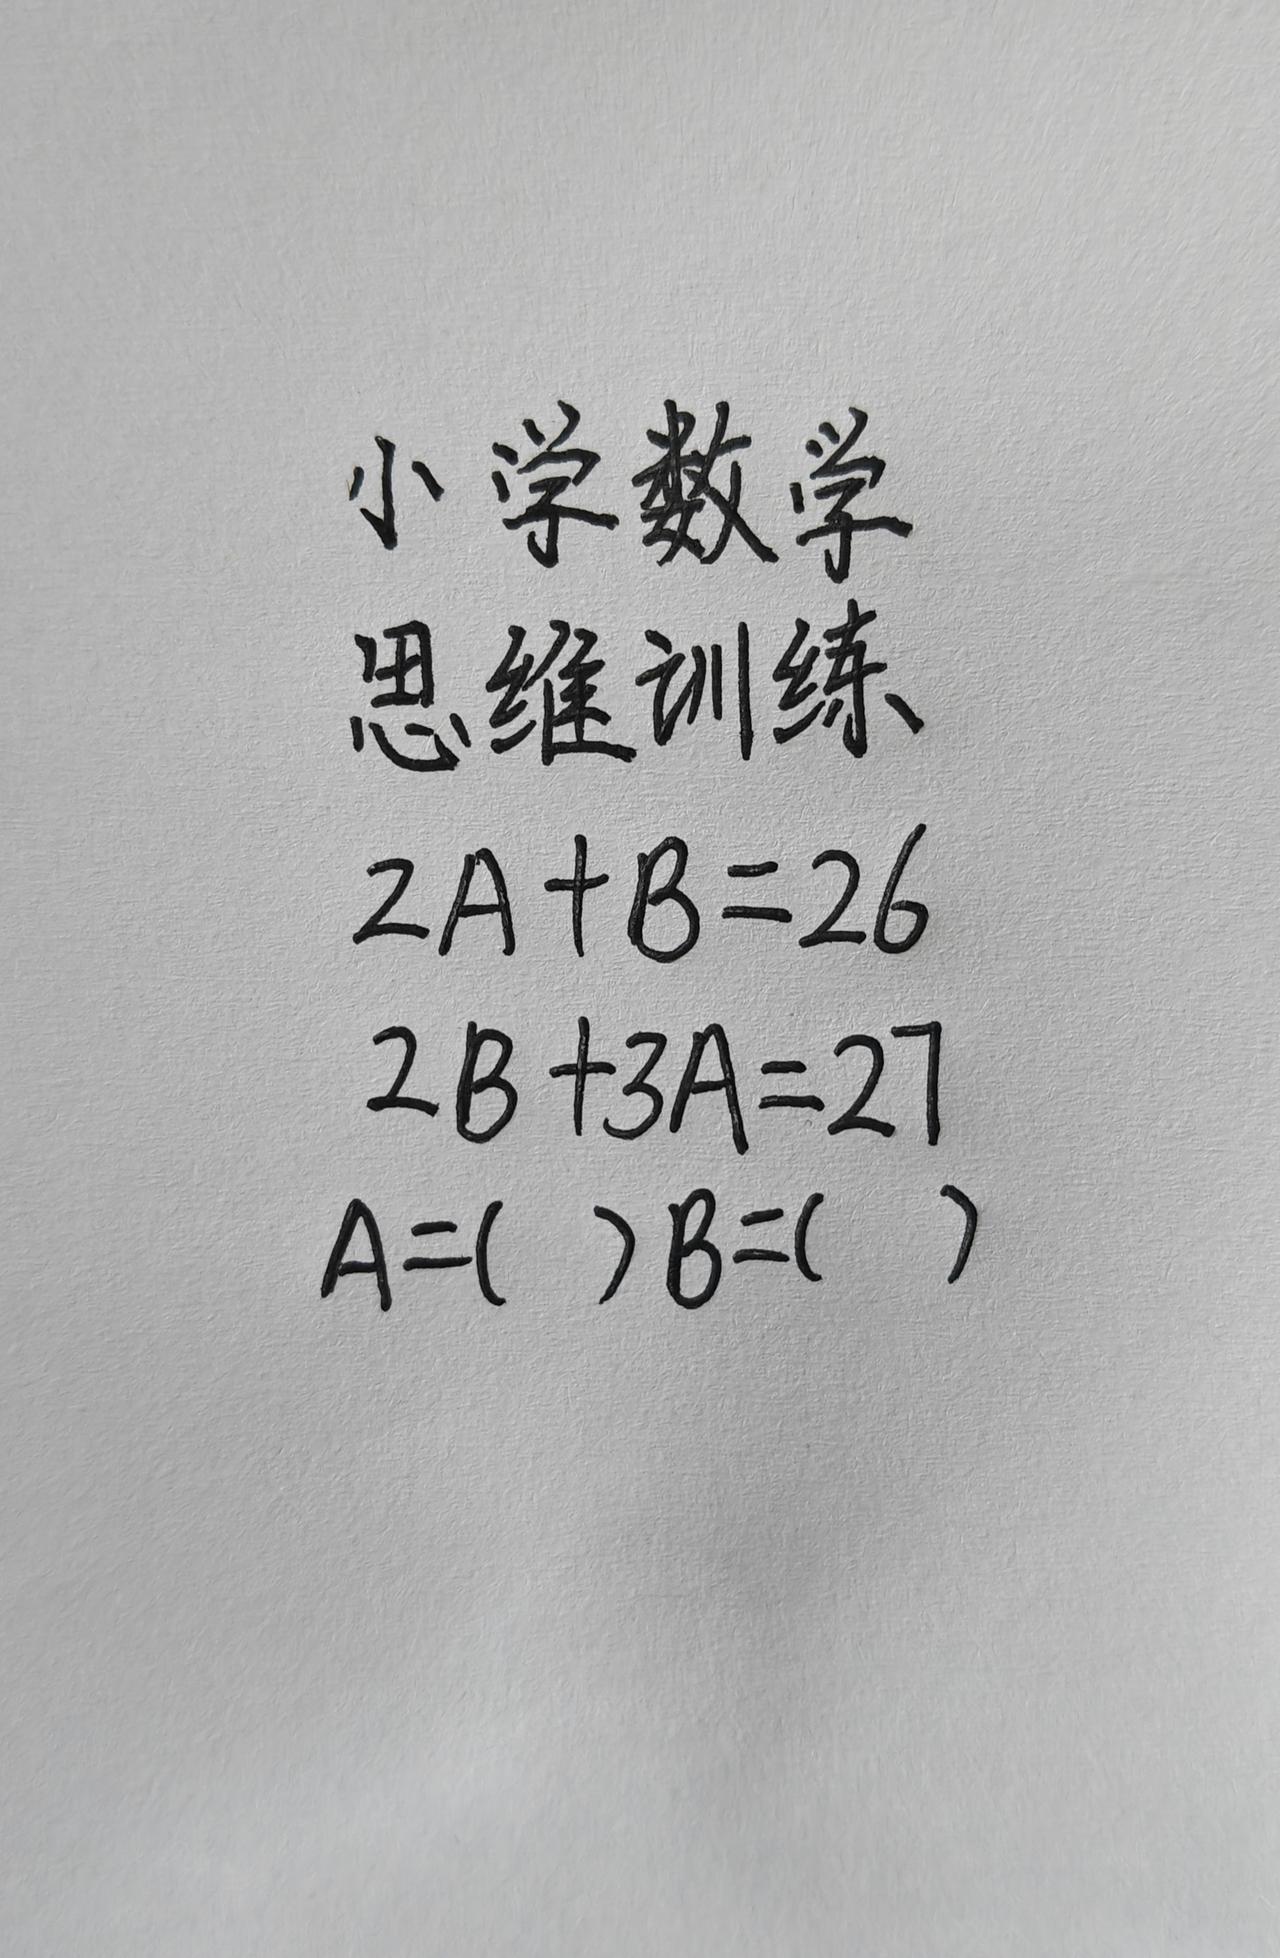 小学数学
思维训练
2A+B=26
2B+3A=27
A=( ) B=( )